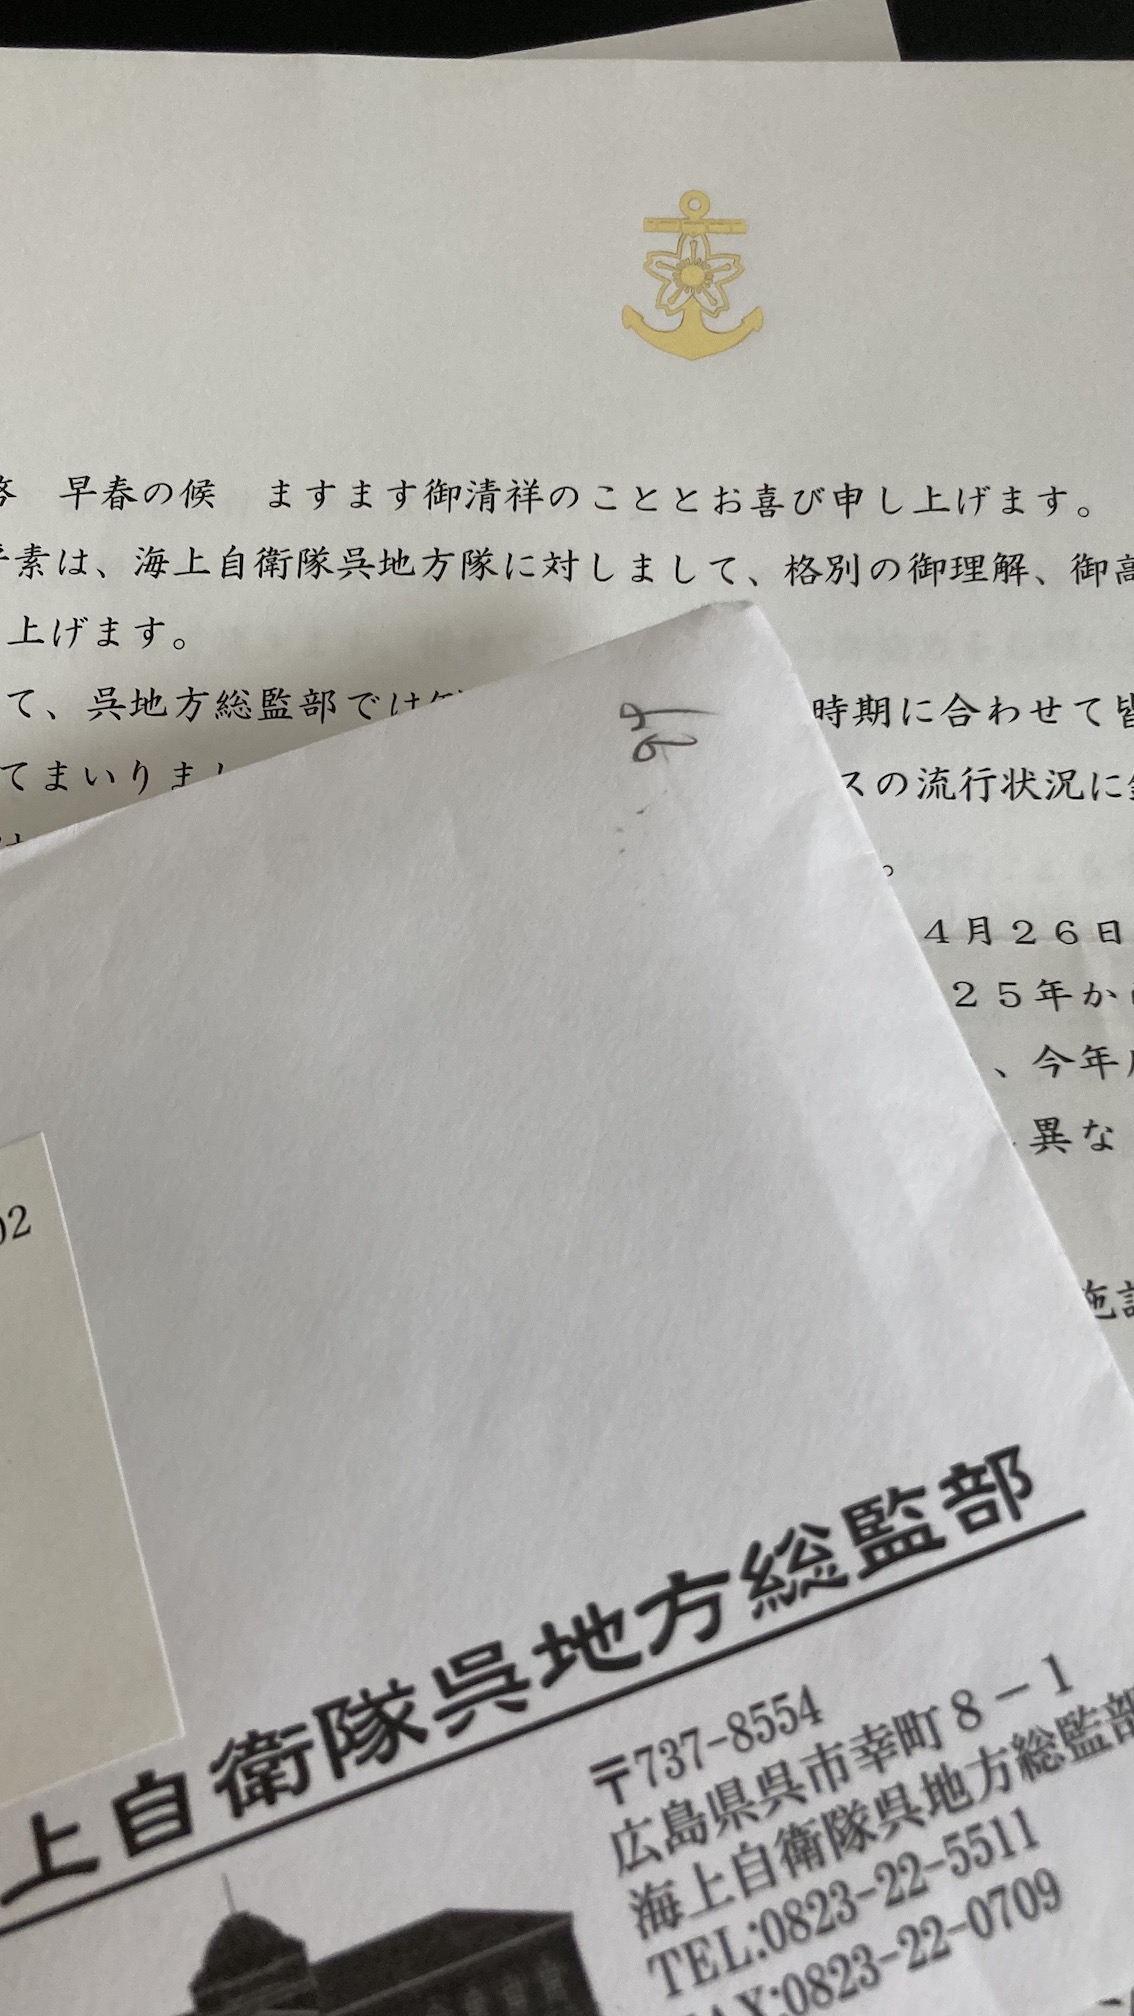 早春の候　ますます御清祥のこととお喜び申し上げます。
素は、海上自衛隊呉地方隊に対しまして、格別の御理解、御高
上げます。
て、呉地方総監部では
時期に合わせて皆
てまいりまし
スの流行状況に
。
４月２６日
２５年か
、今年
異な
施設
02
上自衛隊呉地方総監部
〒737-8554
広島県呉市幸町８－１
海上自衛隊呉地方総監部
TEL:0823-22-5511
FAX:0823-22-0709